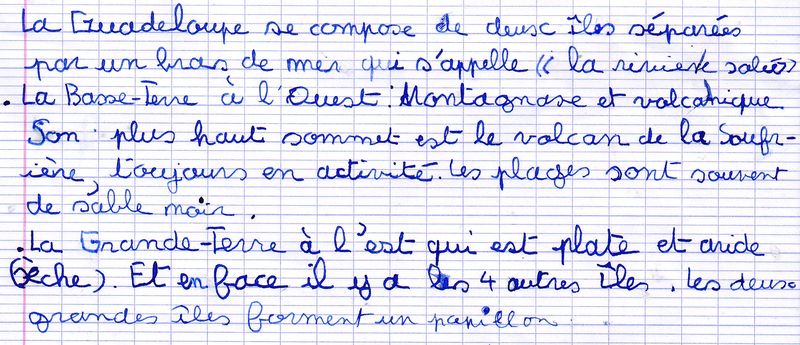 La Guadeloupe se compose de deux îles séparées
par un bras de mer qui s'appelle « la rivière salée»
. La Basse-Terre à l'Ouest : Montagnose et volcanique
Son plus haut sommet est le volcan de la Soufr-
ière, toujours en activité. Les plages sont souvent
de sable noir.
. La Grande-Terre à l'est qui est plate et aride
(sèche). Et en face il y a les 4 autres îles. Les deux
grandes îles forment un papillon.